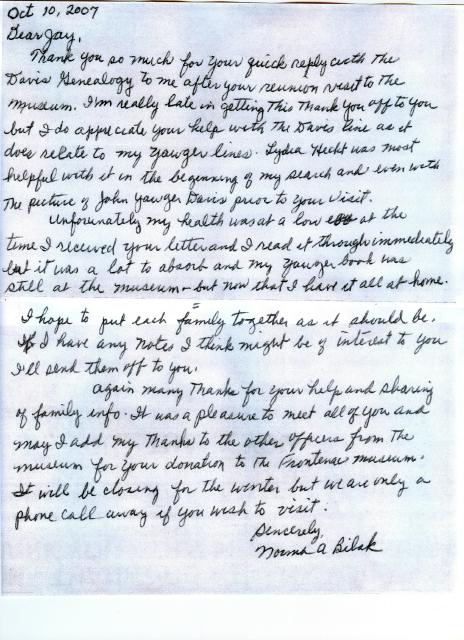 Oct 10, 2007
Dear Jay,
Thank you so much for your quick reply with the
Davis Genealogy to me after your reunion visit to the
museum. I'm really late in getting this Thank you off to you
but I do appreciate your help with the Davis line as it
does relate to my Yawger lines. Lydia Hecht was most
helpful with it in the beginning of my search and even with
the picture of John Yawger Davis prior to your visit.
Unforunately my health was at a low at the
time I received your letter and I read it through immediately
but it was a lot to absorb and my Yawger book was
still at the museum - but now that I have it all at home.
I hope to put each family together as it should be.
If I have any notes I think might be of interest to you
I'll send them off to you.
Again many Thanks for your help and sharing
of family info. It was a pleasure to meet all of you and
may I add my Thanks to the other officers from the
museum for your donation to the Frontenac museum.
It will be closing for the winter but we are only a
phone call away if you wish to visit.
Sincerely,
Norma A Bilak